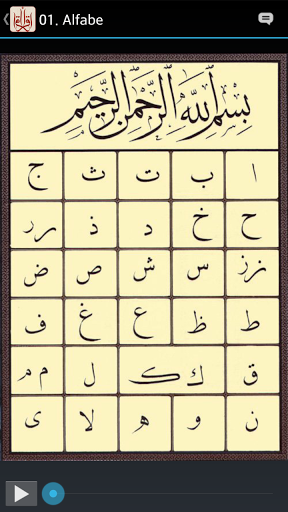 01. Alfabe
بِسْمِ اللّٰهِ الرَّحْمٰنِ الرَّحِيْمِ
ا ب ت ث ج
ح خ د ذ ر ر
ز ز س ش ص ض
ط ظ ع غ ف
ق ك ك ل م م
ن و ه لا ى